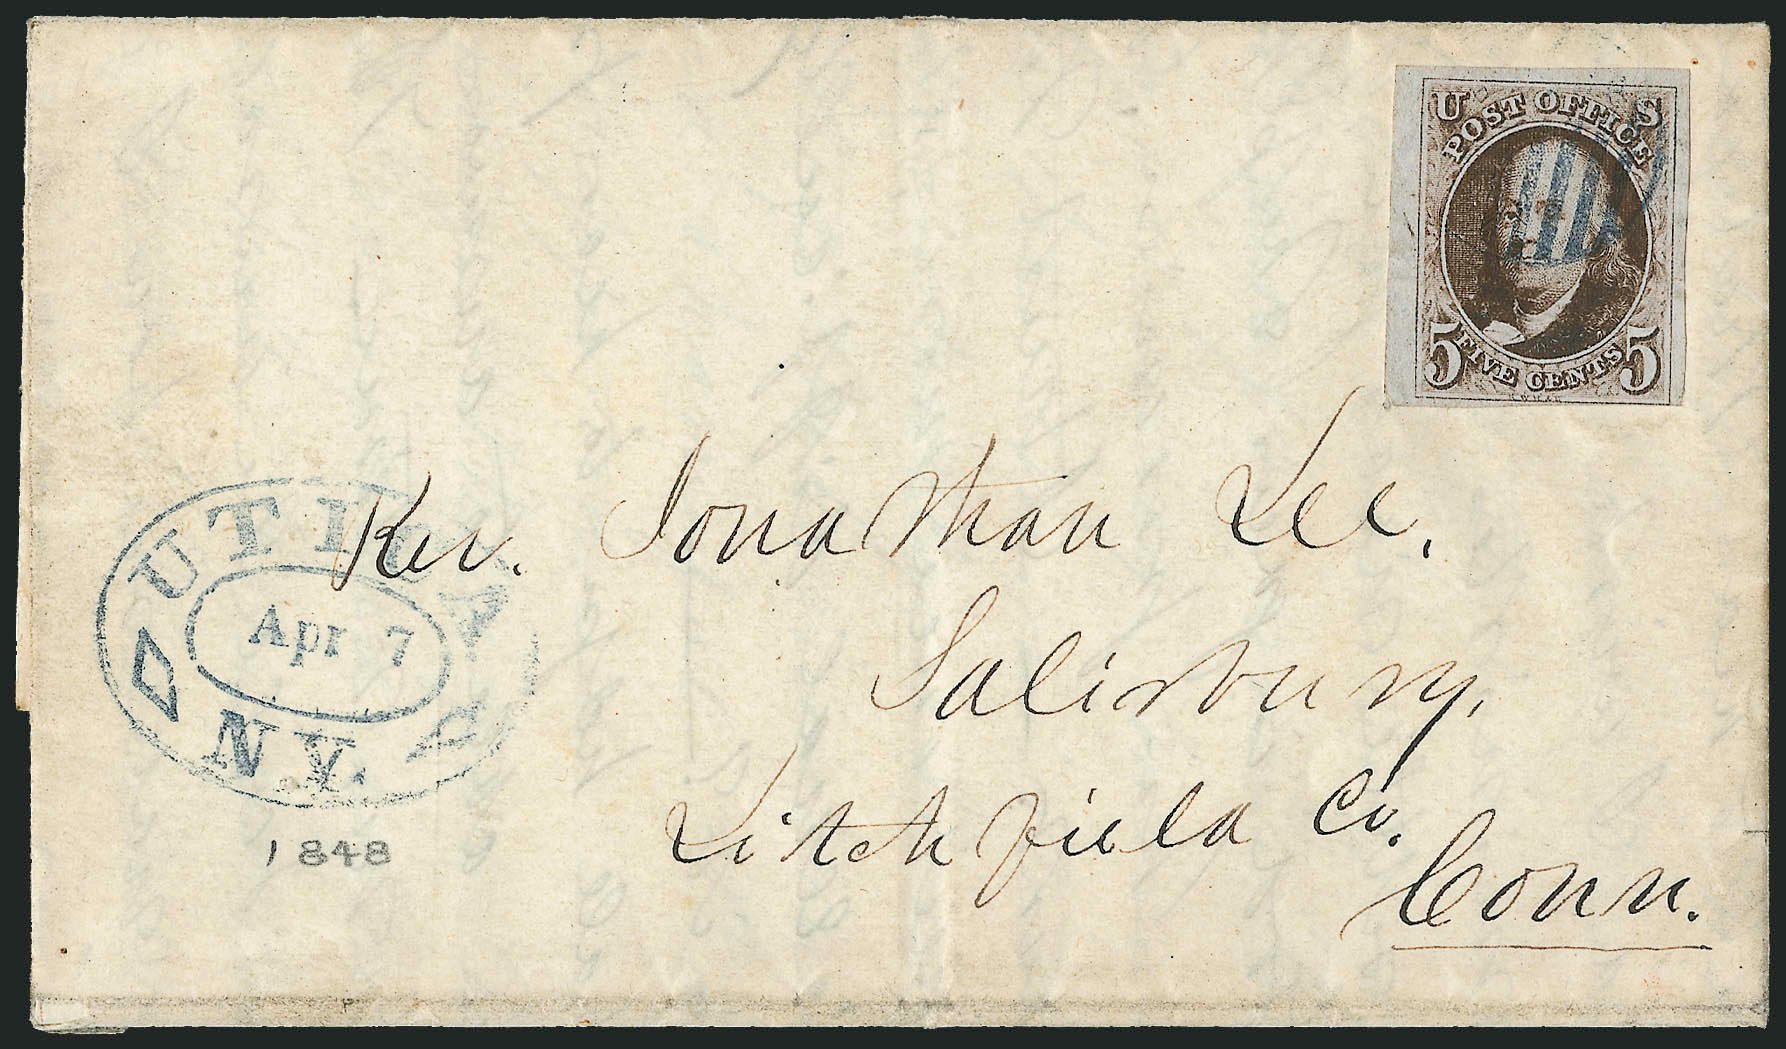 U S
POST OFFICE
5 FIVE CENTS 5
Rev. Jonathan Lee.
Salisbury,
Litchfield Co.
Conn.
UTICA
Apr 7
N.Y.
1848